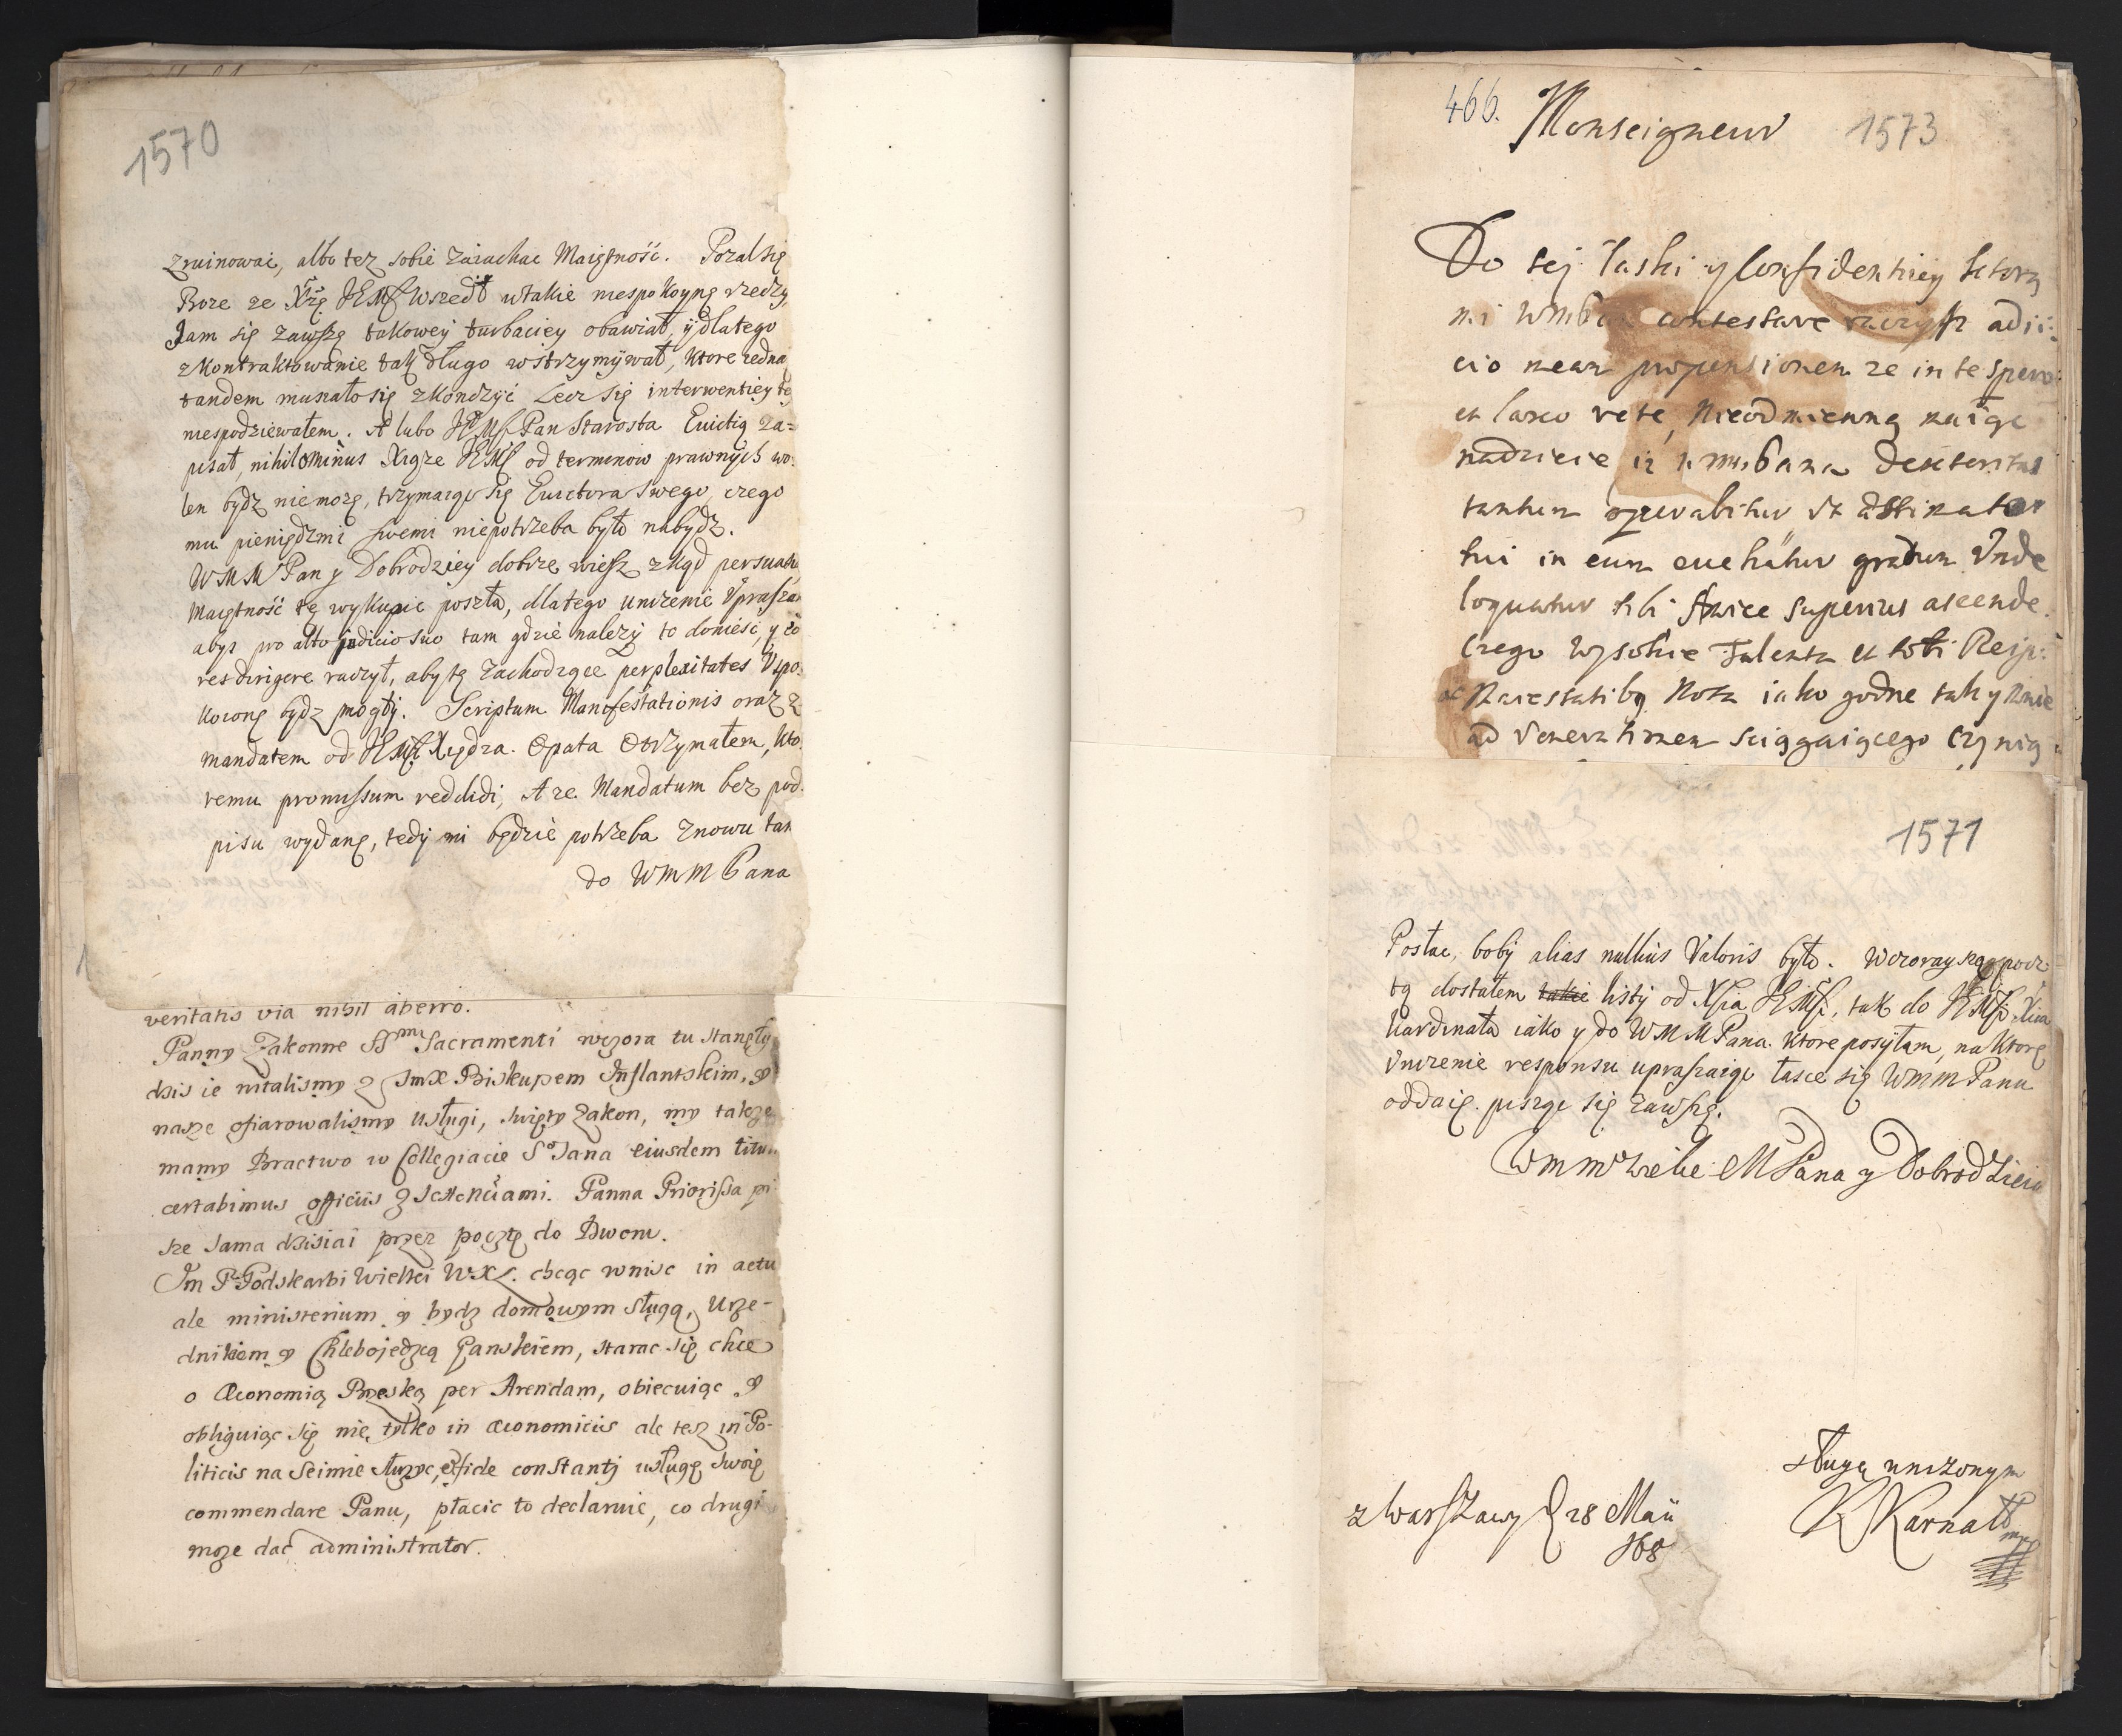 1570
zruinować, albo tez sobie zaiachac Maiętność. Pozal się
Boze ze Xżę JEMś wszedł w takie niespokoyne rzeczy
Jam się zawszę takowey turbaciey obawiał, y dlatego
zkontraktowanie tak długo wstrzymywał, ktore iedna
tandem musiało się zkończyć Lecz się interwentiey te
niespodziewałem. A lubo JEMś Pan Starosta Euictią za=
pisał, nihilominus Xiąze JEMś od terminow prawnych wo:
len bydz niemoze, trzymaiąc się Euictora swego, czego
mu pieniędzmi swemi niepotrzeba było nabydz.
WMM Pan y Dobrodziey dobrze wiesz zkąd persuasia
Maiętność tę wykupic poszła, dlatego unizenie Vprasza
abys pro alto judicio suo tam gdzie nalezy to donieść, y eo
res dirigere raczył, aby te zachodzące perplexitates Vspo:
koione bydz mogły. Scriptum Manifestationis oraz z
mandatem od JEMśi Xiędza Opata Otrzymałem, kto:
remu promissum reddidi, A ze Mandatum bez pod:
pisu wydane, tedy mi będzie potrzeba znowu tam
do WMM Pana
veritatis via nihil aberro.
Panny Zakonne SSmi Sacramenti wczora tu stanęły
dzis ie witalismy z JmX Biskupem Inflantskim, y
nasze ofiarowalismy usługi, święty Zakon, my takze
mamy Bractwo w Collegiacie So Jana eiusdem titu..
certabimus officiis z Jettenciami. Panna Priorissa pi
sze sama dzisiai przez pocztę do Dworu.
Jm P. Podskarbi Wielki WXL. chcąc wnisc in actu
ale ministerium y bydz domowym sługą, Urze-
dnikiem y Chlebojedzcą Panskiem, starac się chce
o Œconomią Brzeską per Arendam, obiecuiąc y
obliguiąc się nie tylko in œconomicis ale tesz in Po-
liticis na Seimie słuzyc, et fide constanti usługę swoię
commendare Panu, płacic to declaruie, co drugi
moze dac administrator.
466. Monseigneur 1573
Do tej łaski y Confidentiey ktorą
mi WmPan contestare raczysz adii:
cio meam propensionem ze in te spero
et lareo rete, Nieodmienną maiąc
nadzieie iz WmPana Dexteritas
tantum operabitur ut Æstimator
tui in eum euehatur gradum Unde
loquatur tibi Amice superius ascende.
Czego Wysokie Talenta et toti Reip:
et Maiestatibq Nota iako godne tak y mnie
ad Venerationem sciągaiącego czynią
1571
Posłac, boby alias nullius Valoris było. Wczorayszą pocz
tą dostałem takie listy od Xcia JEMści, tak do JEMści Xcia
Kardinała iako y do WMM Pana. Ktore posyłam, na ktore
Vnizenie responsu upraszaiąc łasce się WmmPanu
oddaię. piszę się zawszę.
Wmm Wielce MPana y Dobrodzieia
sługą unizonym
z Warszawy d 28 Maii
168
K Karnałł
mp